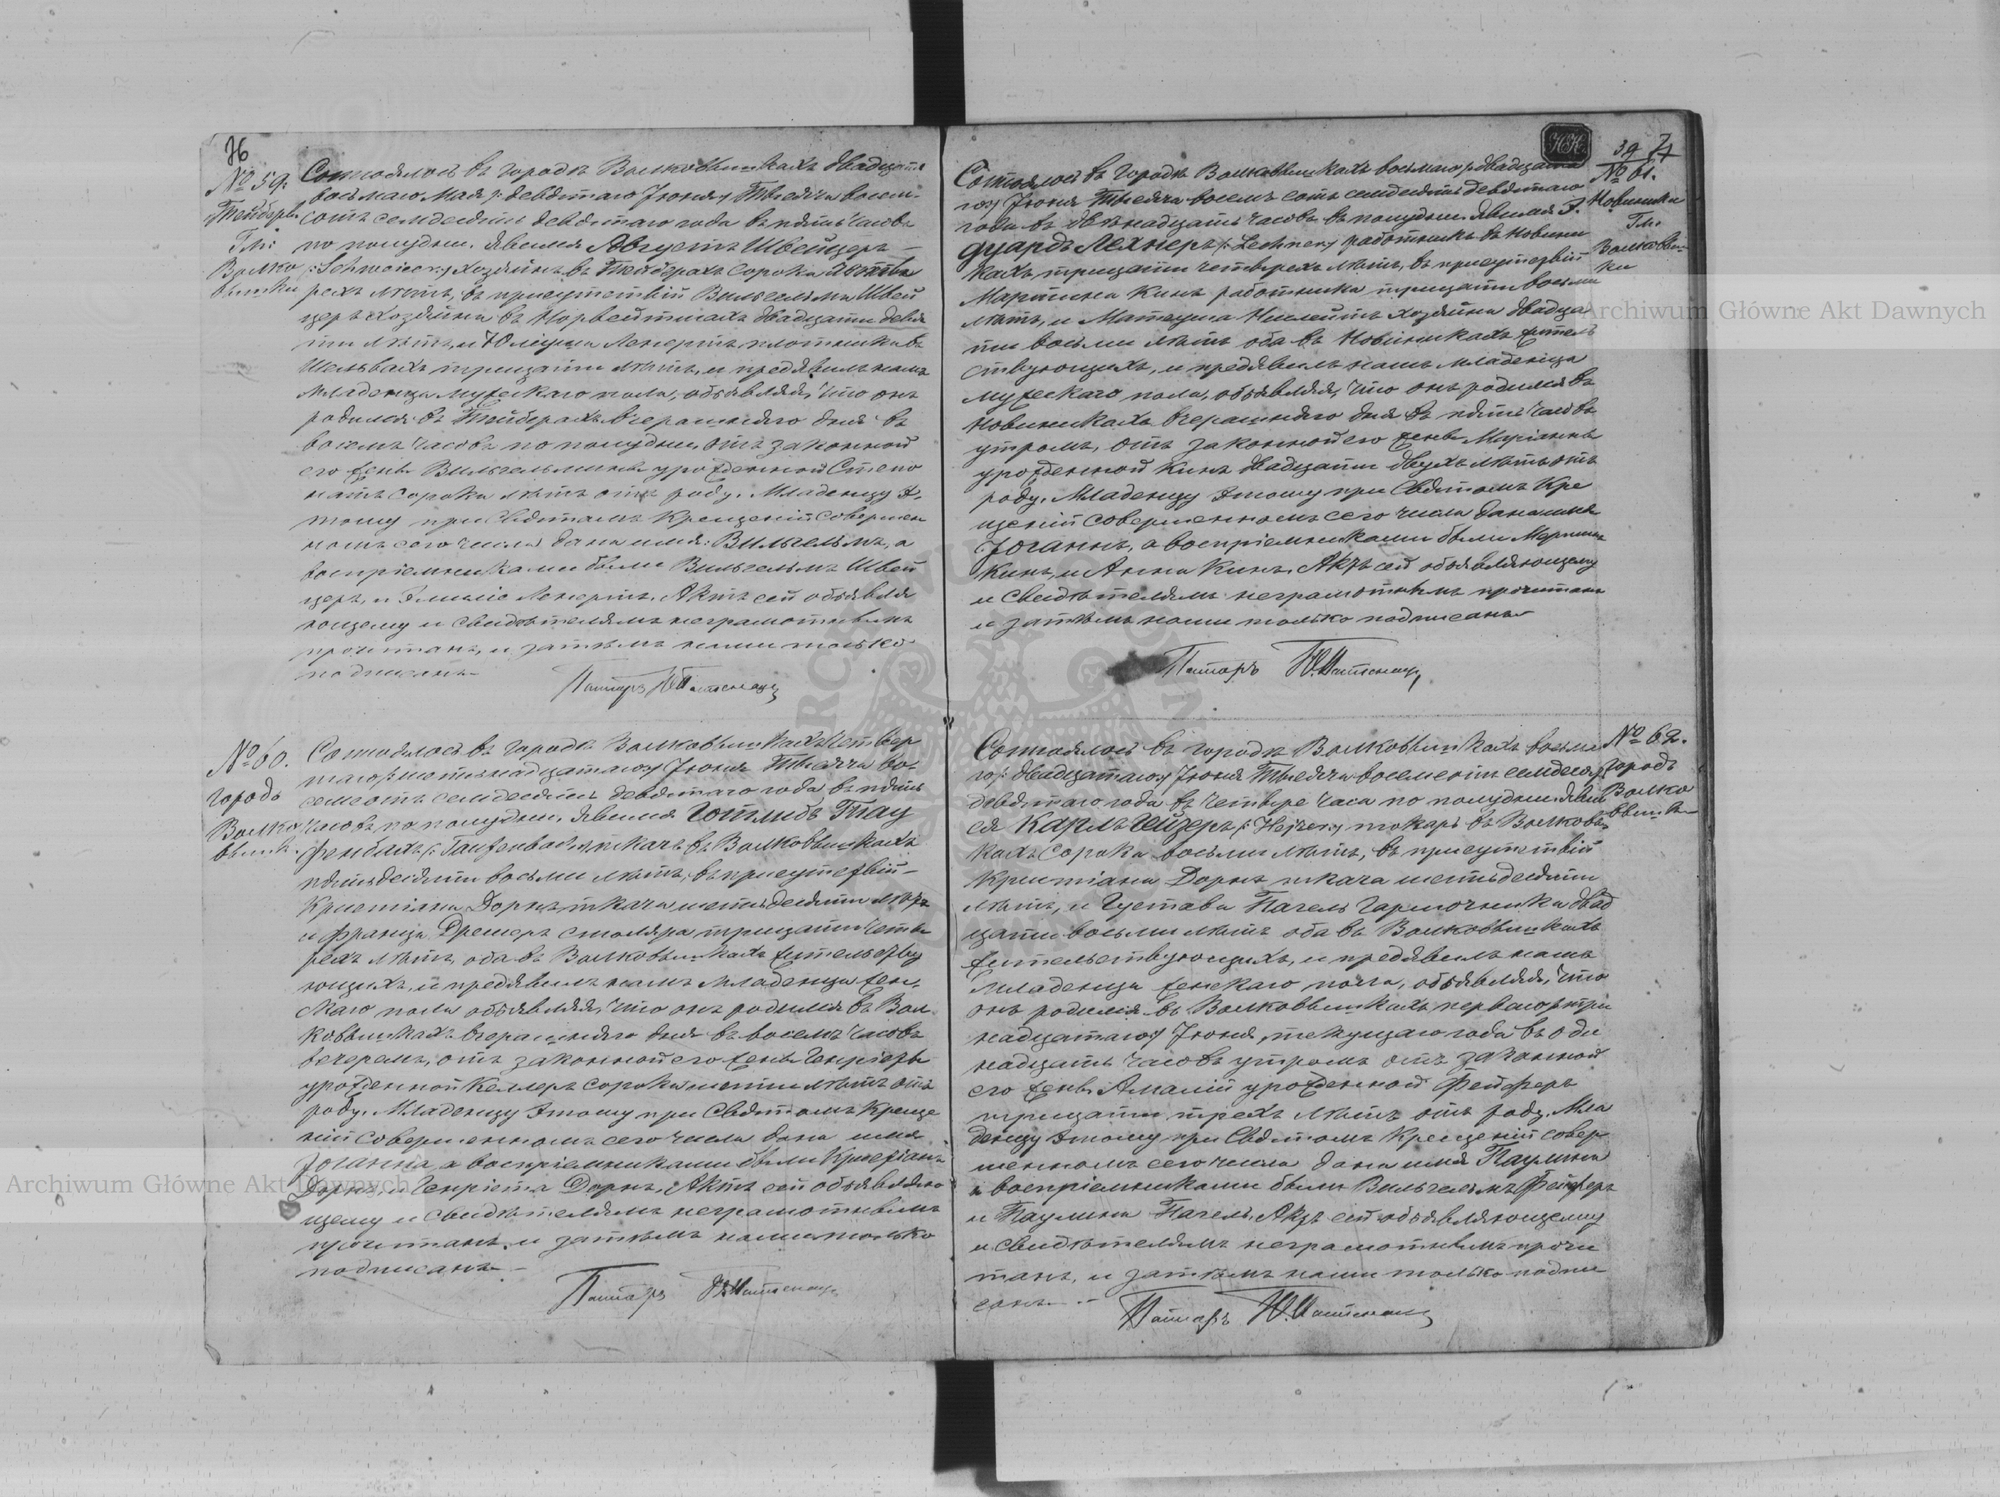 76
№ 59.
Тейберы
Гм:
Волко
вышки
Состоялось въ городѣ Волковышкахъ двадцать
восьмаго Мая /: девятаго Іюня :/ Тысяча восем-
сотъ семдесятъ девятаго года въ пять часовъ
по полудни. Явился Августъ Швейцеръ
/: Schweicer :/ хозяинъ въ Тейберахъ сорока четы
рехъ лѣтъ, въ присутствіи Вильгельма Швей
церъ хозяина въ двадцати девя
ти лѣтъ, и Юліуша Ленертъ плотника въ
тридцати лѣтъ, и предъявилъ намъ
младенца мужескаго пола, объявляя, что онъ
родился въ Тейберахъ вчерашняго дня въ
восемъ часовъ по полудни, отъ законной
его жены Вильгельмины урожденной
сорока лѣтъ отъ роду. Младенцу э-
тому при Святомъ Крещеніи совершен
номъ сего числа дано имя: Вильгельмъ, а
воспріемниками были Вильгельмъ Швей
церъ, и Эмилія Ленертъ. Актъ сей объявля
ющему и свидѣтелямъ неграмотнымъ
прочитанъ, и затѣмъ нами только
подписанъ
Пасторъ
№ 60.
городъ
Волко
вышк.
Состоялось въ городѣ Волковышкахъ четвер
таго /: шестнадцатаго :/ Іюня Тысяча во-
семсотъ семдесятъ девятаго года въ пять
часовъ по полудни. Явился Готлибъ Тау
фенбахъ /: Taufenbach :/ ткачъ въ Волковышкахъ
пятьдесяти восьми лѣтъ, въ присутствіи
Христіана Дорнъ ткача шестьдесяти лѣтъ
и Франца Дремеръ столяра тридцати четы
рехъ лѣтъ, оба въ Волковышкахъ жительству
ющихъ, и предъявилъ намъ младенца жен-
скаго пола объявляя, что онъ родился въ Вол-
ковышкахъ вчерашняго дня въ восемъ часовъ
вечеромъ, отъ законной его жены Генріеты
урожденной Келлеръ сорока шести лѣтъ отъ
роду. Младенцу этому при Святомъ Креще
ніи совершенномъ сего числа дано имя
Іоганна, а воспріемниками были Христіанъ
Дорнъ, и Генріета Дорнъ. Актъ сей объявляю
щему и свидѣтелямъ неграмотнымъ
прочитанъ, и затѣмъ нами только
подписанъ
Пасторъ
39
№ 61.
Новиники
Гм.
Волковыш-
ки
Состоялось въ городѣ Волковышкахъ восьмаго /: двадцата
го :/ Іюня Тысяча восемъ сотъ семдесятъ девятаго
года въ двѣнадцать часовъ въ полудни. Явился Э-
дуардъ Лехнеръ /: Lechner :/ работникъ въ Новини
кахъ, тридцати четырехъ лѣтъ, въ присутствіи
Мартина Кинъ работника тридцати восьми
лѣтъ, и Матеуша хозяина двадца
ти восьми лѣтъ оба въ Новиникахъ житель
ствующихъ, и предъявилъ намъ младенца
мужескаго пола, объявляя, что онъ родился въ
Новиникахъ вчерашняго дня въ пять часовъ
утромъ, отъ законной его жены Маріанны
урожденной Кинъ двадцати двухъ лѣтъ отъ
роду. Младенцу этому при Святомъ Кре
щеніи совершенномъ сего числа дано имя
Іоганнъ, а воспріемниками были Мартинъ
Кинъ, и Анна Кинъ. Актъ сей объявляющему
и свидѣтелямъ неграмотнымъ прочитанъ
и затѣмъ нами только подписанъ
Пасторъ
№ 62.
городъ
Волко
вышк
Состоялось въ городѣ Волковышкахъ восьма
го /: двадцатаго :/ Іюня Тысяча восемсотъ семдесятъ
девятаго года въ четыре часа по полудни. Явил
ся Карлъ Гейзеръ /: Hejzer :/ токарь въ Волковыш
кахъ сорока восьми лѣтъ, въ присутствіи
Христіана Дорнъ ткача шестьдесяти
лѣтъ, и Густава Пагель двад
цати восьми лѣтъ оба въ Волковышкахъ
жительствующихъ, и предъявилъ намъ
младенца женскаго пола, объявляя, что
онъ родился въ Волковышкахъ перваго /: три
надцатаго :/ Іюня, текущаго года въ оди
надцать часовъ утромъ отъ законной
его жены Амаліи урожденной Фейферъ
тридцати трехъ лѣтъ отъ роду. Мла
денцу этому при Святомъ Крещеніи совер
шенномъ сего числа дано имя Паулина
а воспріемниками были Вильгельмъ Фейферъ
и Паулина Пагель. Актъ сей объявляющему
и свидѣтелямъ неграмотнымъ прочи
танъ, и затѣмъ нами только подпи
санъ
Пасторъ
Archiwum Główne Akt Dawnych
Archiwum Główne Akt Dawnych